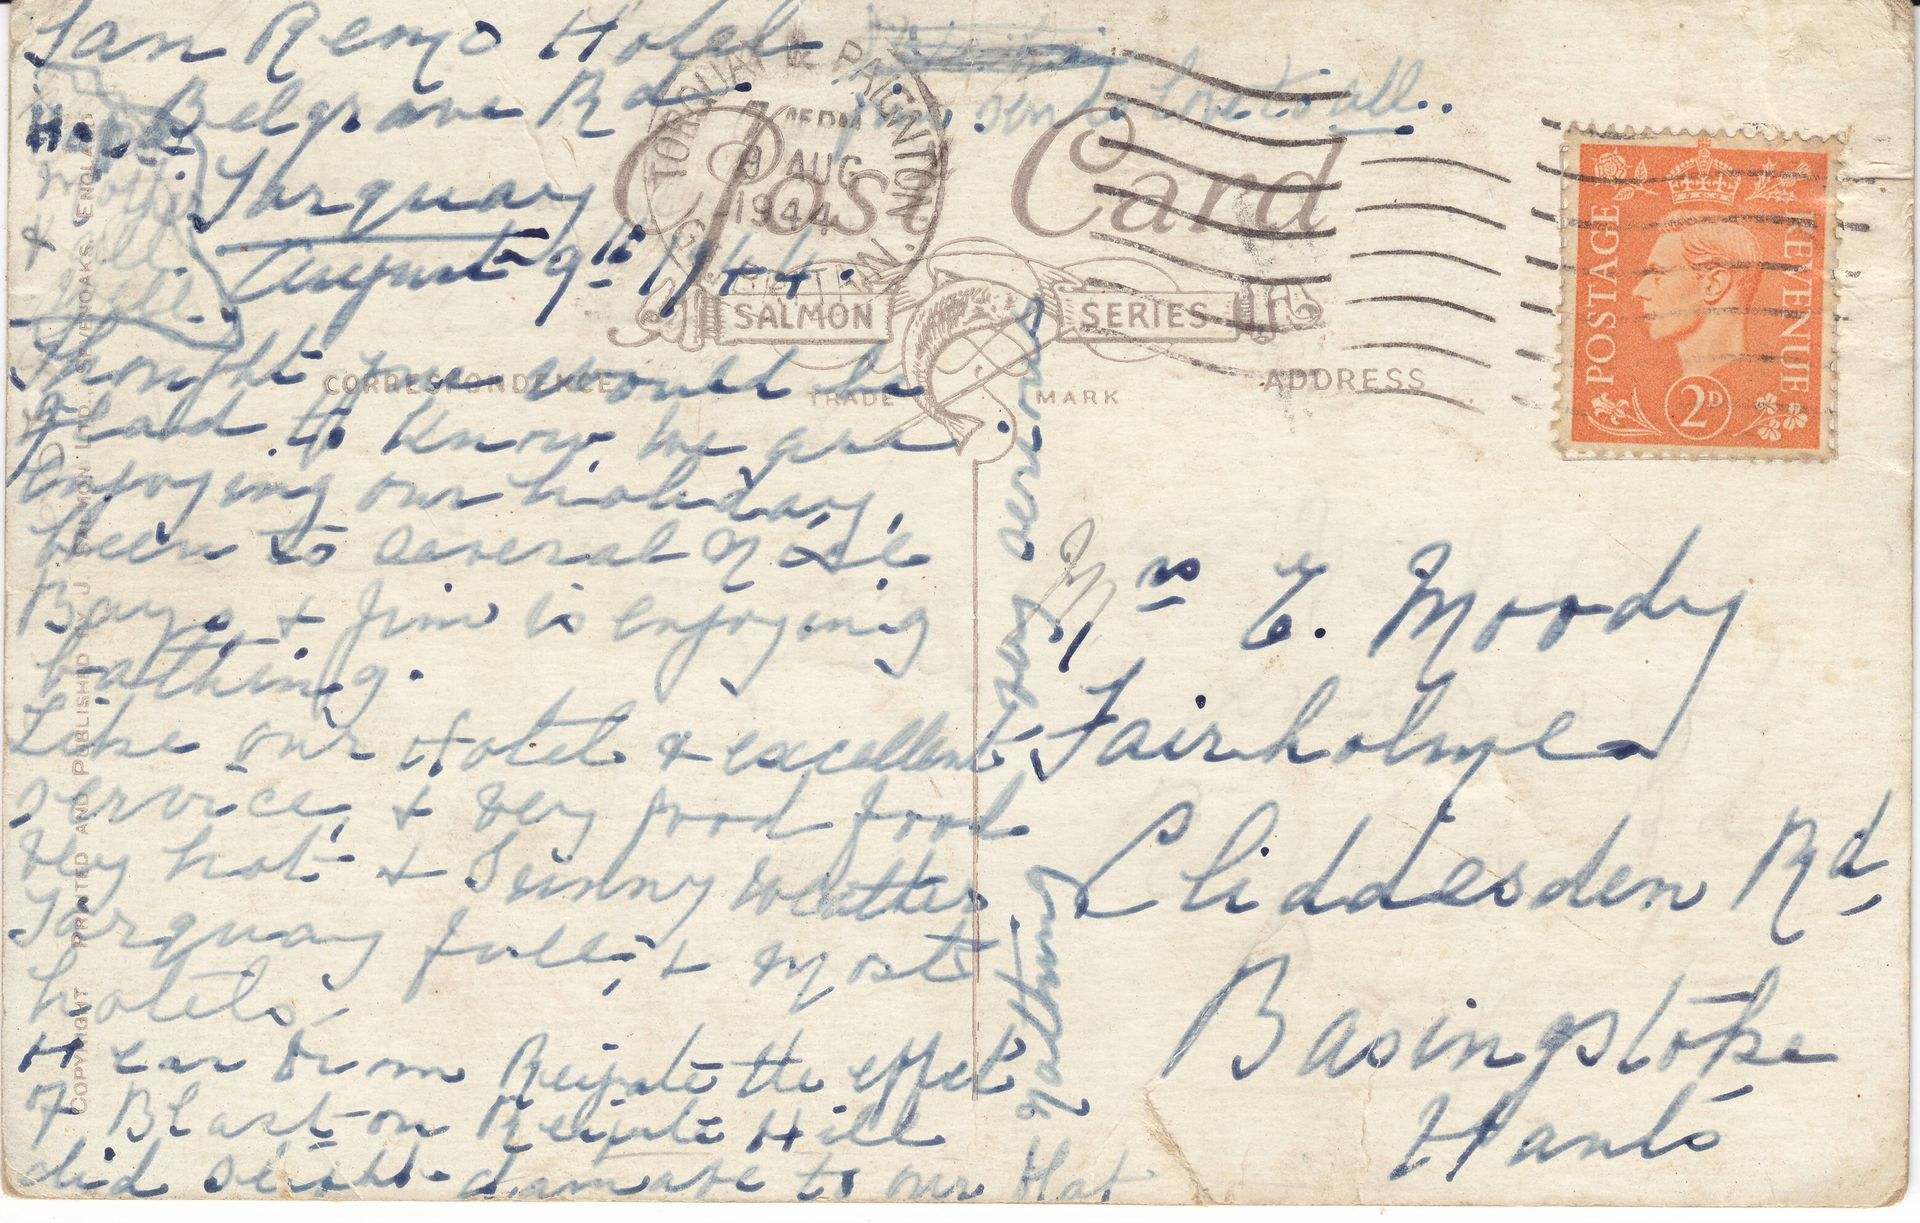 San Remo Hotel
Belgrave Rd.
Torquay
August 9th 1944.
Hope
Mother
& all
well.
send love to all..
Thought you would be
glad to know we are
enjoying our holiday,
been to several of the
Bays, & Jim is enjoying
bathing.
Like our Hotel & excellent
service, & very good food
very hot & Sunny weather
Torquay full, & most
hotels.
Hear from Reigate the effect
of Blast on Reigate Hill
did slight damage to our flat
nothing
very serious
Post Card
SALMON SERIES
CORRESPONDENCE
TRADE MARK
ADDRESS
TORQUAY & PAIGNTON.
9 AUG
1944
POSTAGE
REVENUE
2D
Mrs E. Moody
Fairholme
Cliddesden Rd,
Basingstoke
Hants
COPYRIGHT PRINTED AND PUBLISHED BY J. SALMON LTD., SEVENOAKS, ENGLAND